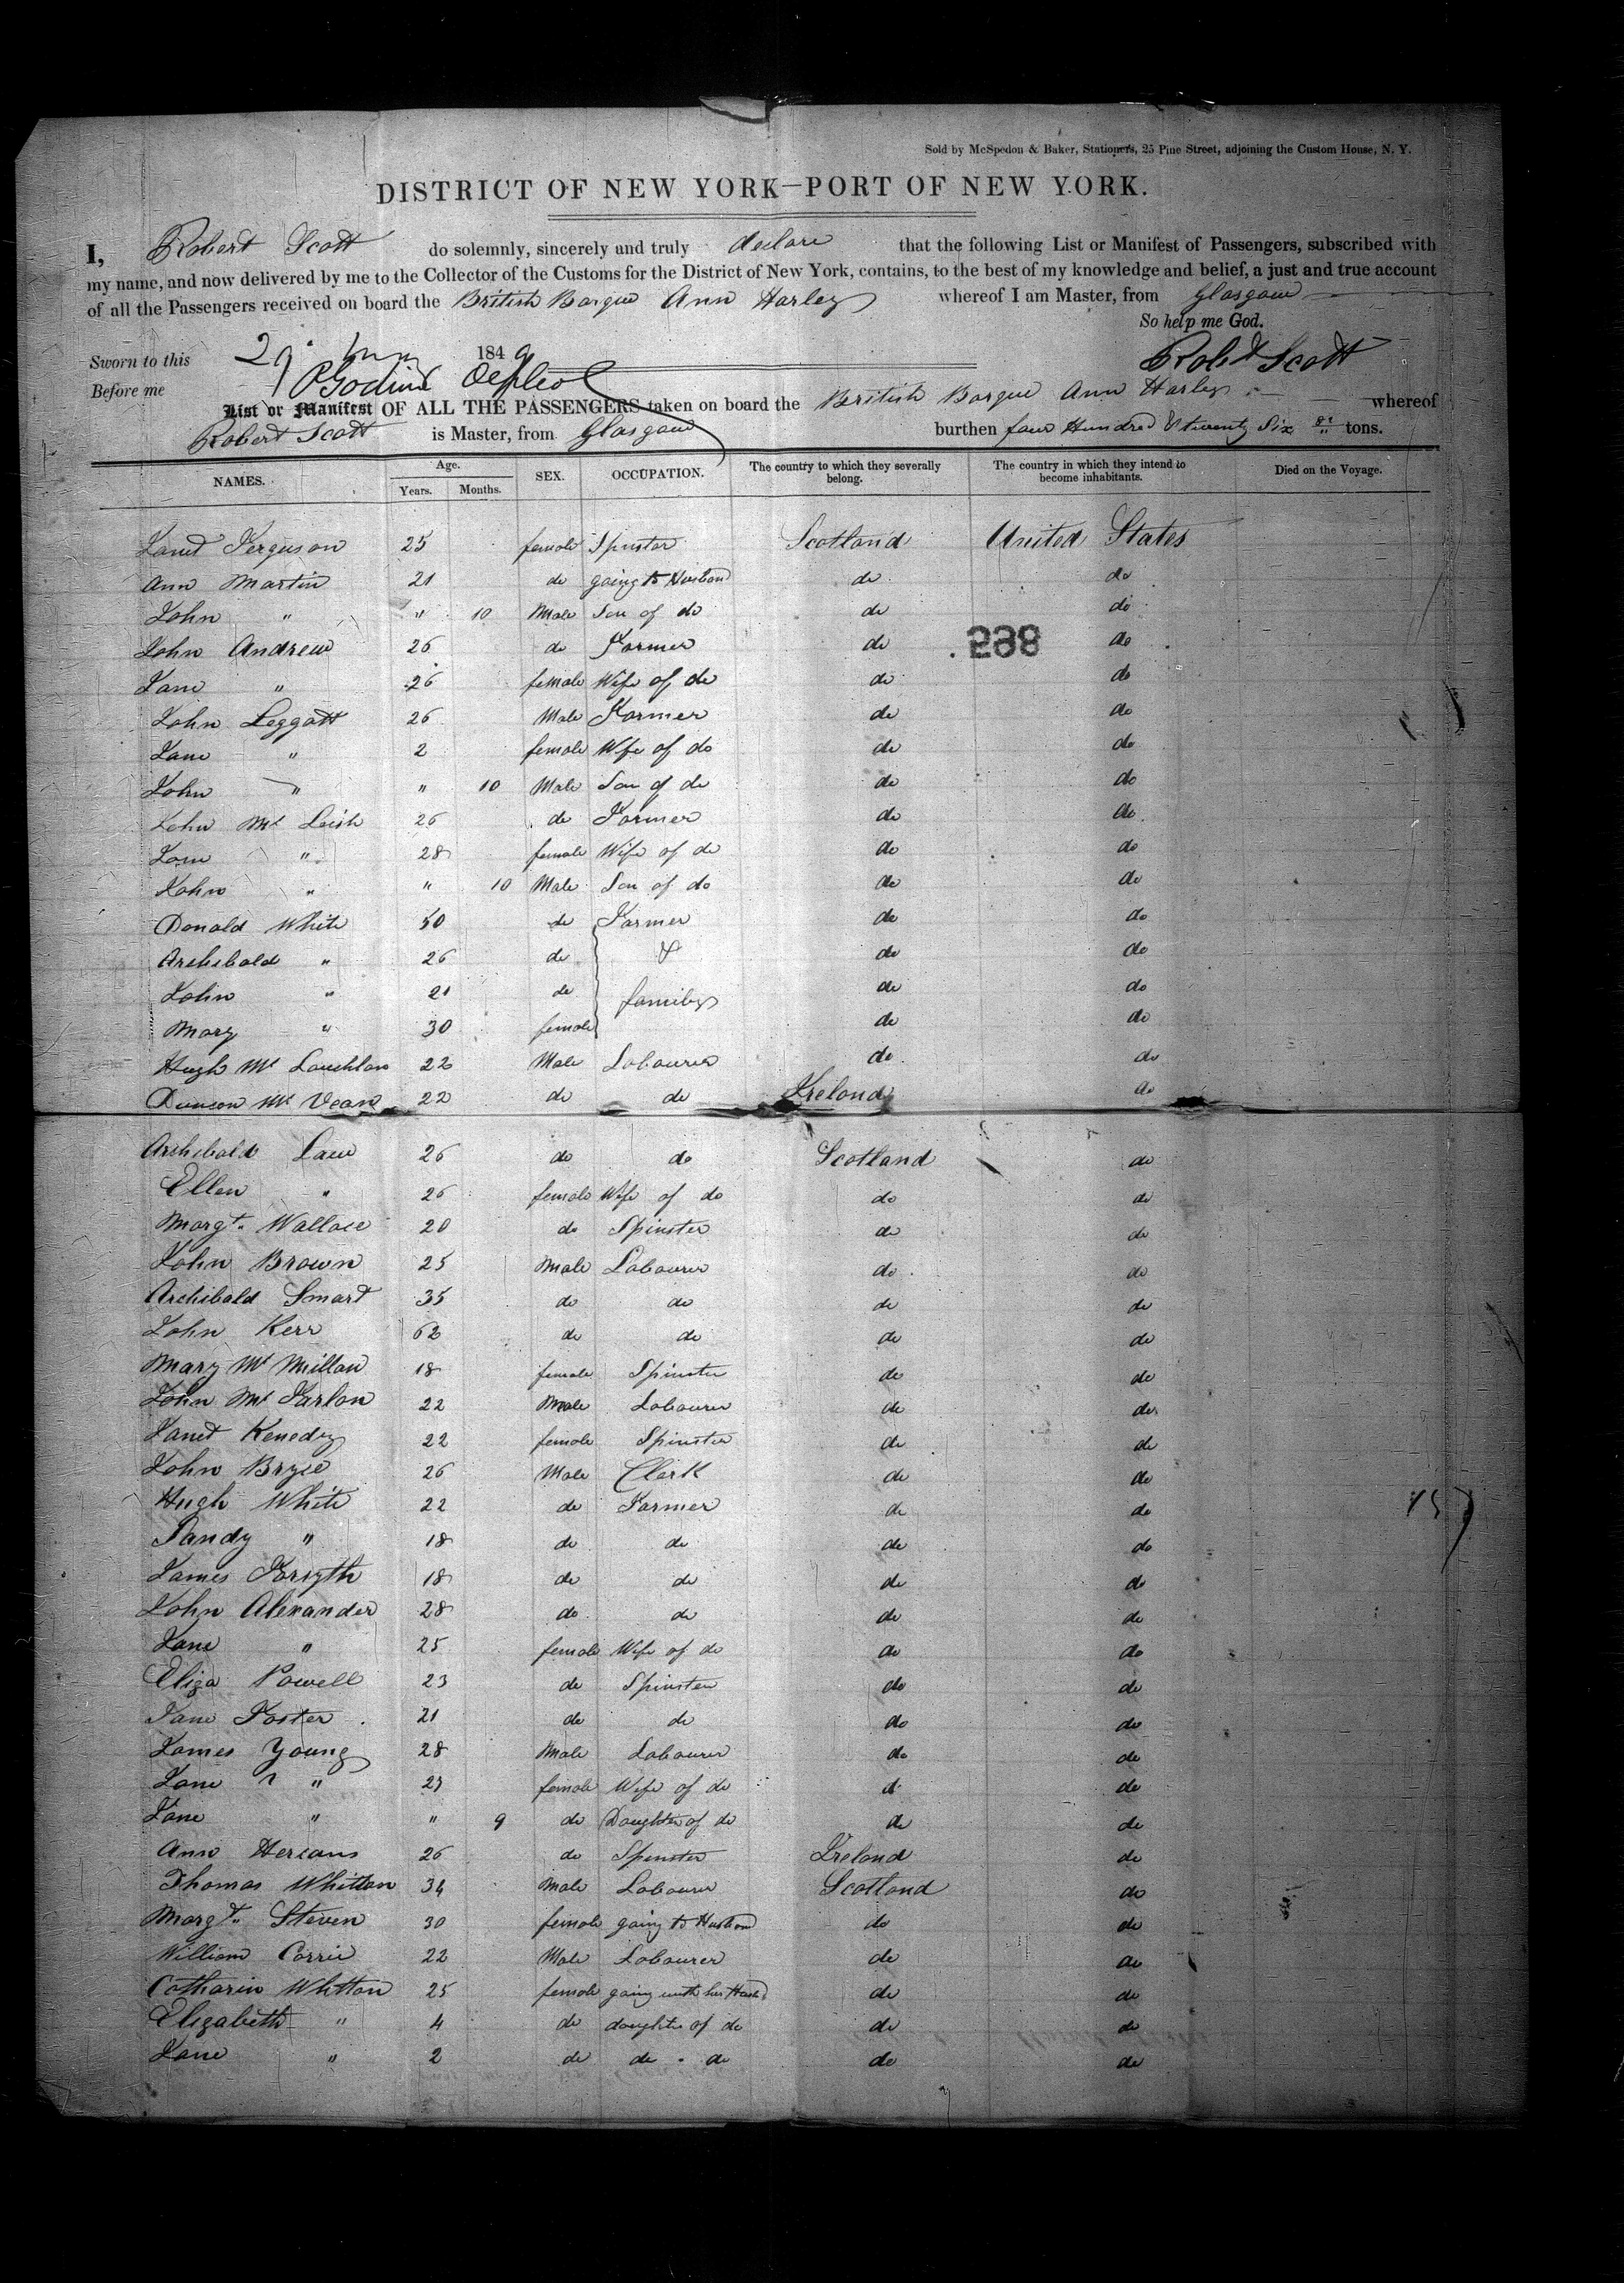 Sold by McSpedon & Baker, Stationers, 25 Pine Street, adjoining the Custom House, N. Y.
DISTRICT OF NEW YORK—PORT OF NEW YORK.
I, Robert Scott do solemnly, sincerely and truly declare that the following List or Manifest of Passengers, subscribed with
my name, and now delivered by me to the Collector of the Customs for the District of New York, contains, to the best of my knowledge and belief, a just and true account
of all the Passengers received on board the British Barque Ann Harley whereof I am Master, from Glasgow
So help me God.
Sworn to this 29 1849 Robt Scott
Before me
List or Manifest OF ALL THE PASSENGERS taken on board the British Barque Ann Harley whereof
Robert Scott is Master, from Glasgow burthen four Hundred & twenty Six tons.
NAMES. Age. Years. Months. SEX. OCCUPATION. The country to which they severally belong. The country in which they intend to become inhabitants. Died on the Voyage.
Janet Ferguson 25 female Spinster Scotland United States
Ann Martin 21 do going to Husband do do
John " " 10 Male Son of do do do
John Andrew 26 do Farmer do do
898
Jane " 26 female Wife of do do do
John Leggatt 26 Male Farmer do do
Jane " 2 female Wife of do do do
John " " 10 Male Son of do do do
John Mc Leish 26 do Farmer do do
Jane " 28 female Wife of do do do
John " " 10 Male Son of do do do
Donald White 50 do Farmer do do
Archibald " 26 do & do do
John " 21 do family do do
Mary " 30 female do do
Hugh Mc Lauchlan 22 Male Labourer do do
Duncan Mc Vean 22 do do Ireland do
Archibald Law 26 do do Scotland do
Ellen " 26 female Wife of do do do
Margt. Wallace 20 do Spinster do do
John Brown 25 Male Labourer do do
Archibald Smart 35 do do do do
John Kerr 62 do do do do
Mary Mc Millan 18 female Spinster do do
John Mc Farlan 22 Male Labourer do do
Janet Kenedy 22 female Spinster do do
John Bryce 26 Male Clerk do do
Hugh White 22 do Farmer do do
Sandy " 18 do do do do
James Forsyth 18 do do do do
John Alexander 28 do do do do
Jane " 25 female Wife of do do do
Eliza Powell 23 do Spinster do do
Jane Foster 21 do do do do
James Young 28 Male Labourer do do
Jane " 27 female Wife of do do do
Jane " " 9 do Daughter of do do do
Ann 26 do Spinster Ireland do
Thomas Whitton 34 Male Labourer Scotland do
Margt. Steven 30 female going to Husband do do
William Corrie 22 Male Labourer do do
Catharin Whitton 25 female going with her Husbd do do
Elizabeth " 4 do daughter of do do do
Jane " 2 do do " do do do